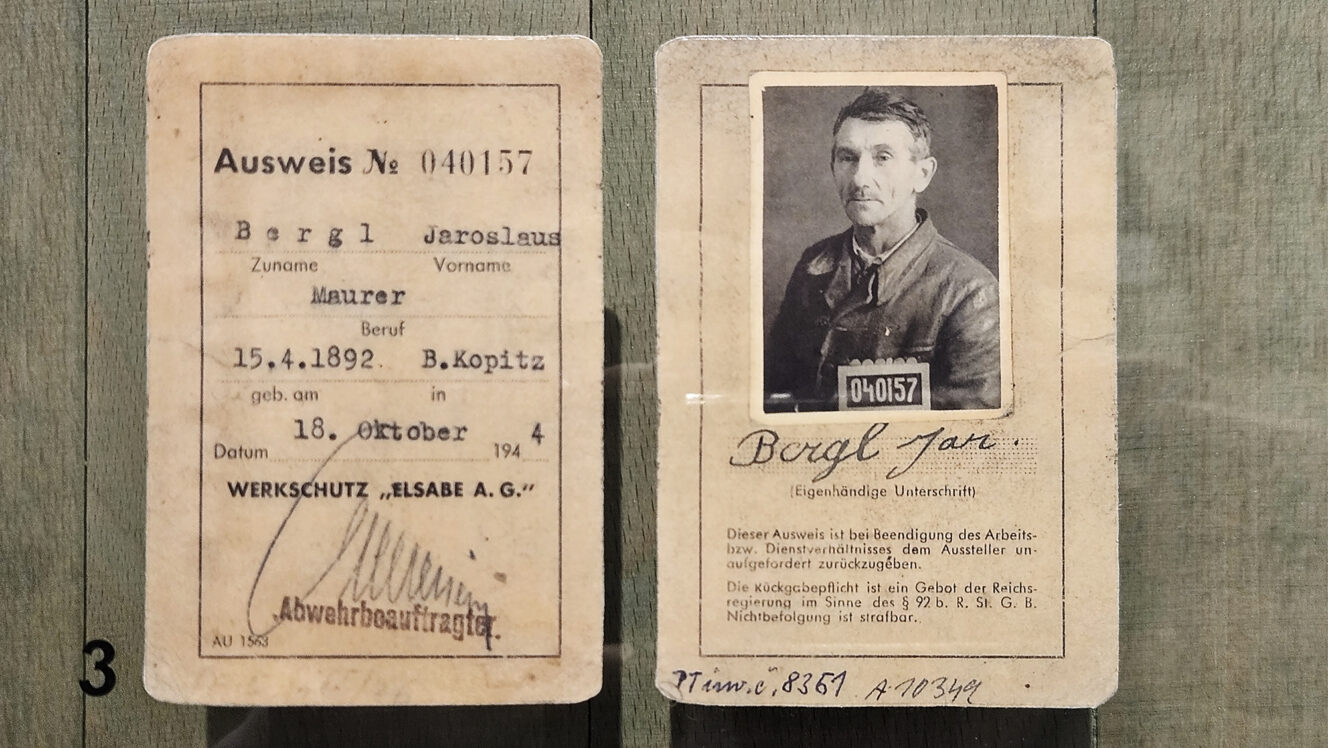 Ausweis № 040157
Bergl Jaroslaus
Zuname Vorname
Maurer
Beruf
15.4.1892. B.Kopitz
geb. am in
18. Oktober 4
Datum 194
WERKSCHUTZ „ELSABE A. G.“
Abwehrbeauftragter.
AU 1563
3
040157
Bergl Jar.
(Eigenhändige Unterschrift)
Dieser Ausweis ist bei Beendigung des Arbeits-
bzw. Dienstverhältnisses dem Aussteller un-
aufgefordert zurückzugeben.
Die Rückgabepflicht ist ein Gebot der Reichs-
regierung im Sinne des § 92 b. R. St. G. B.
Nichtbefolgung ist strafbar.
PT inv. č. 8361 A 10349